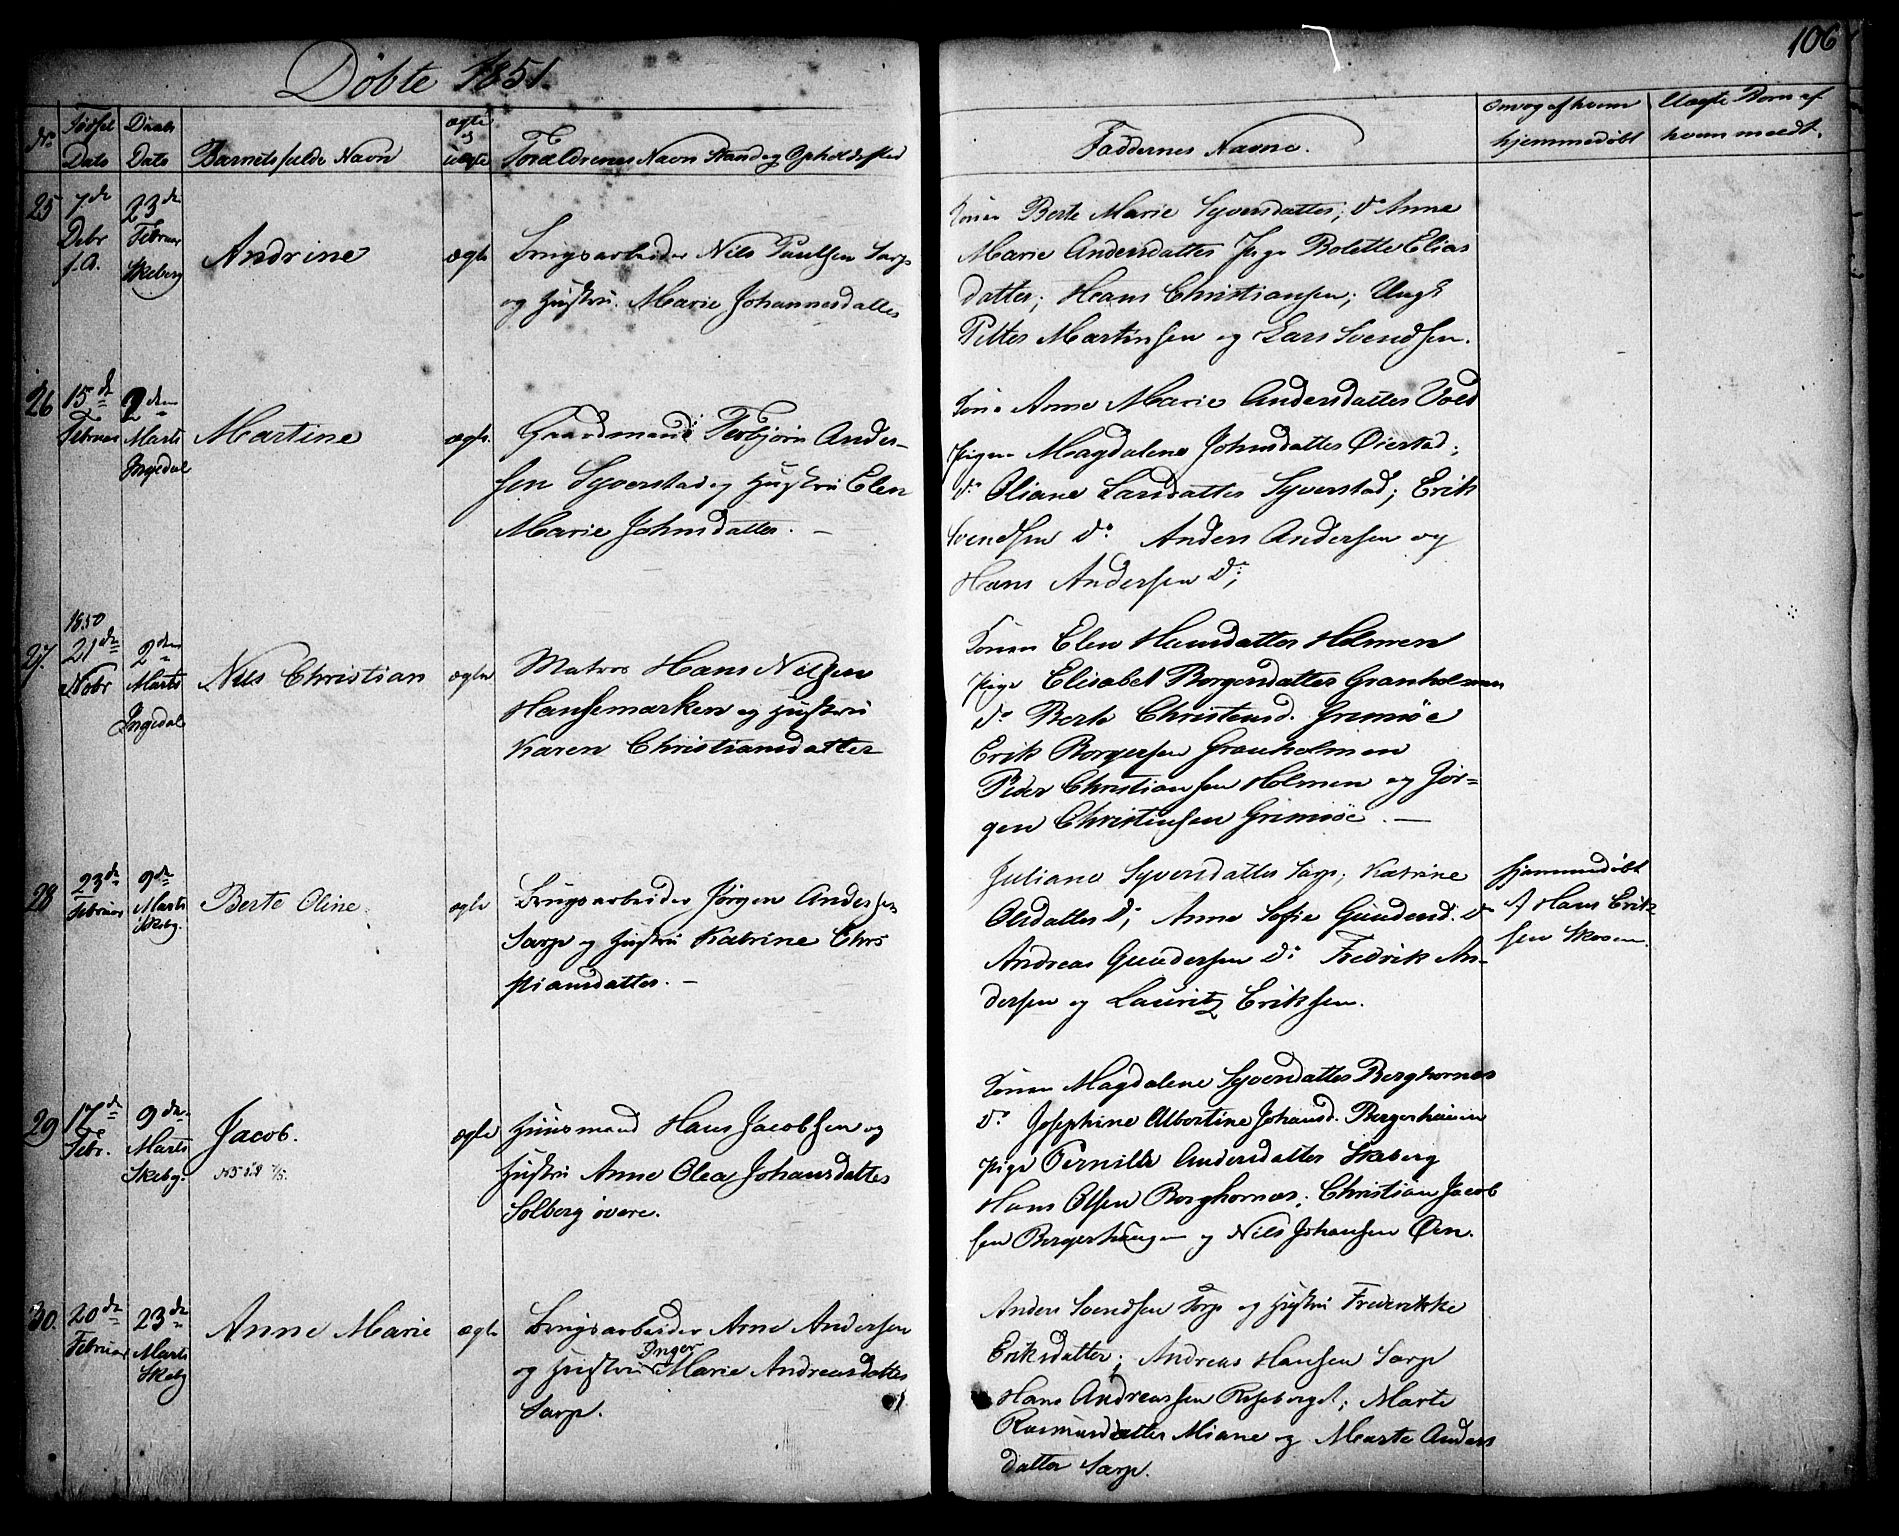 106
Døbte 1851.
No Fødsel Dato Daabs Dato Barnets fulde Navn ægte el uægte Forældrenes Navn Stand og Opholdssted
Faddernes Navne. Om og af hvem hjemmedøbt Uægte Børn af hvem meldt.
25 7de Debr f.A. 23de Februar Skeberg Andrine ægte
Brugsarbeider Nils Paulsen Sarp
og Hustru Marie Johannesdatter
Konen Berte Marie Syversdatter; Do Anne
Marie Andersdatter Pige Bolette Elias
datter; Hans Christiansen; Ungk
Petter Martinsen og Lars Svendsen.
26 15de Februar 2den Marts Ingedal Martine ægte.
Gaardmand Torbjørn Ander-
sen Syverstad og Hustru Elen
Marie Johnsdatter. –
Kone Anne Marie Andersdatter Vold
Pigen Magdalene Johnsdatter Øiestad;
Do Oliane Larsdatter Syverstad; Erik
Svendsen Do Anders Andersen og
Hans Andersen Do;
27. 1850 21de Nobr 2den Marts Ingedal Nils Christian ægte
Matros Hans Nilsen
Hansemarken og Hustru
Karen Christiansdatter
Konen Elen Hansdatter Holmen
Pige Elisabet Borgersdatter Granholmen
Do Berte Christensd. Grimsøe
Erik Borgersen Granholmen
Peder Christiansen Holmen og Jør=
gen Christensen Grimsøe. –
28 23de Februar 9de Marts Skebg. Berte Oline. ægte
Brugsarbeider Jørgen Andersen
Sarp og Hustru Katrine Chri
stiansdatter. –
Juliane Syversdatter Sarp; Katrine
Olsdatter Do; Anne Sofie Gundersd. Do
Andreas Gundersen Do Fredrik An-
dersen og Lauritz Eriksen.
hjemmedøbt
af Hans Erik-
sen
29 17de Febr. 9de Marts Skebg. Jacob. ægte
Huusmand Hans Jacobsen og
Hustru Anne Olea Johansdatter
Solberg øvere.
Konen Magdalene Syversdatter Berghornes
Do Josephine Albertine Johansd. Bergerhaugen
Pige Pernille Andersdatter Skeberg
Hans Olsen Borghornes; Christian Jacob
sen Bergerhaugen og Nils Johansen Øen.
30. 20de Februar 23de Marts Skebg Anne Marie ægte
Brugsarbeider Arne Andersen
og Hustru Inger Marie Andreasdatter
Sarp.
Anders Svendsen Torp og Hustru Frederikke
Eriksdatter; Andreas Hansen Sarp
Hans Andreassen Roseberget; Marte
Rasmusdatter Miane og Marte Anders
datter Sarp.